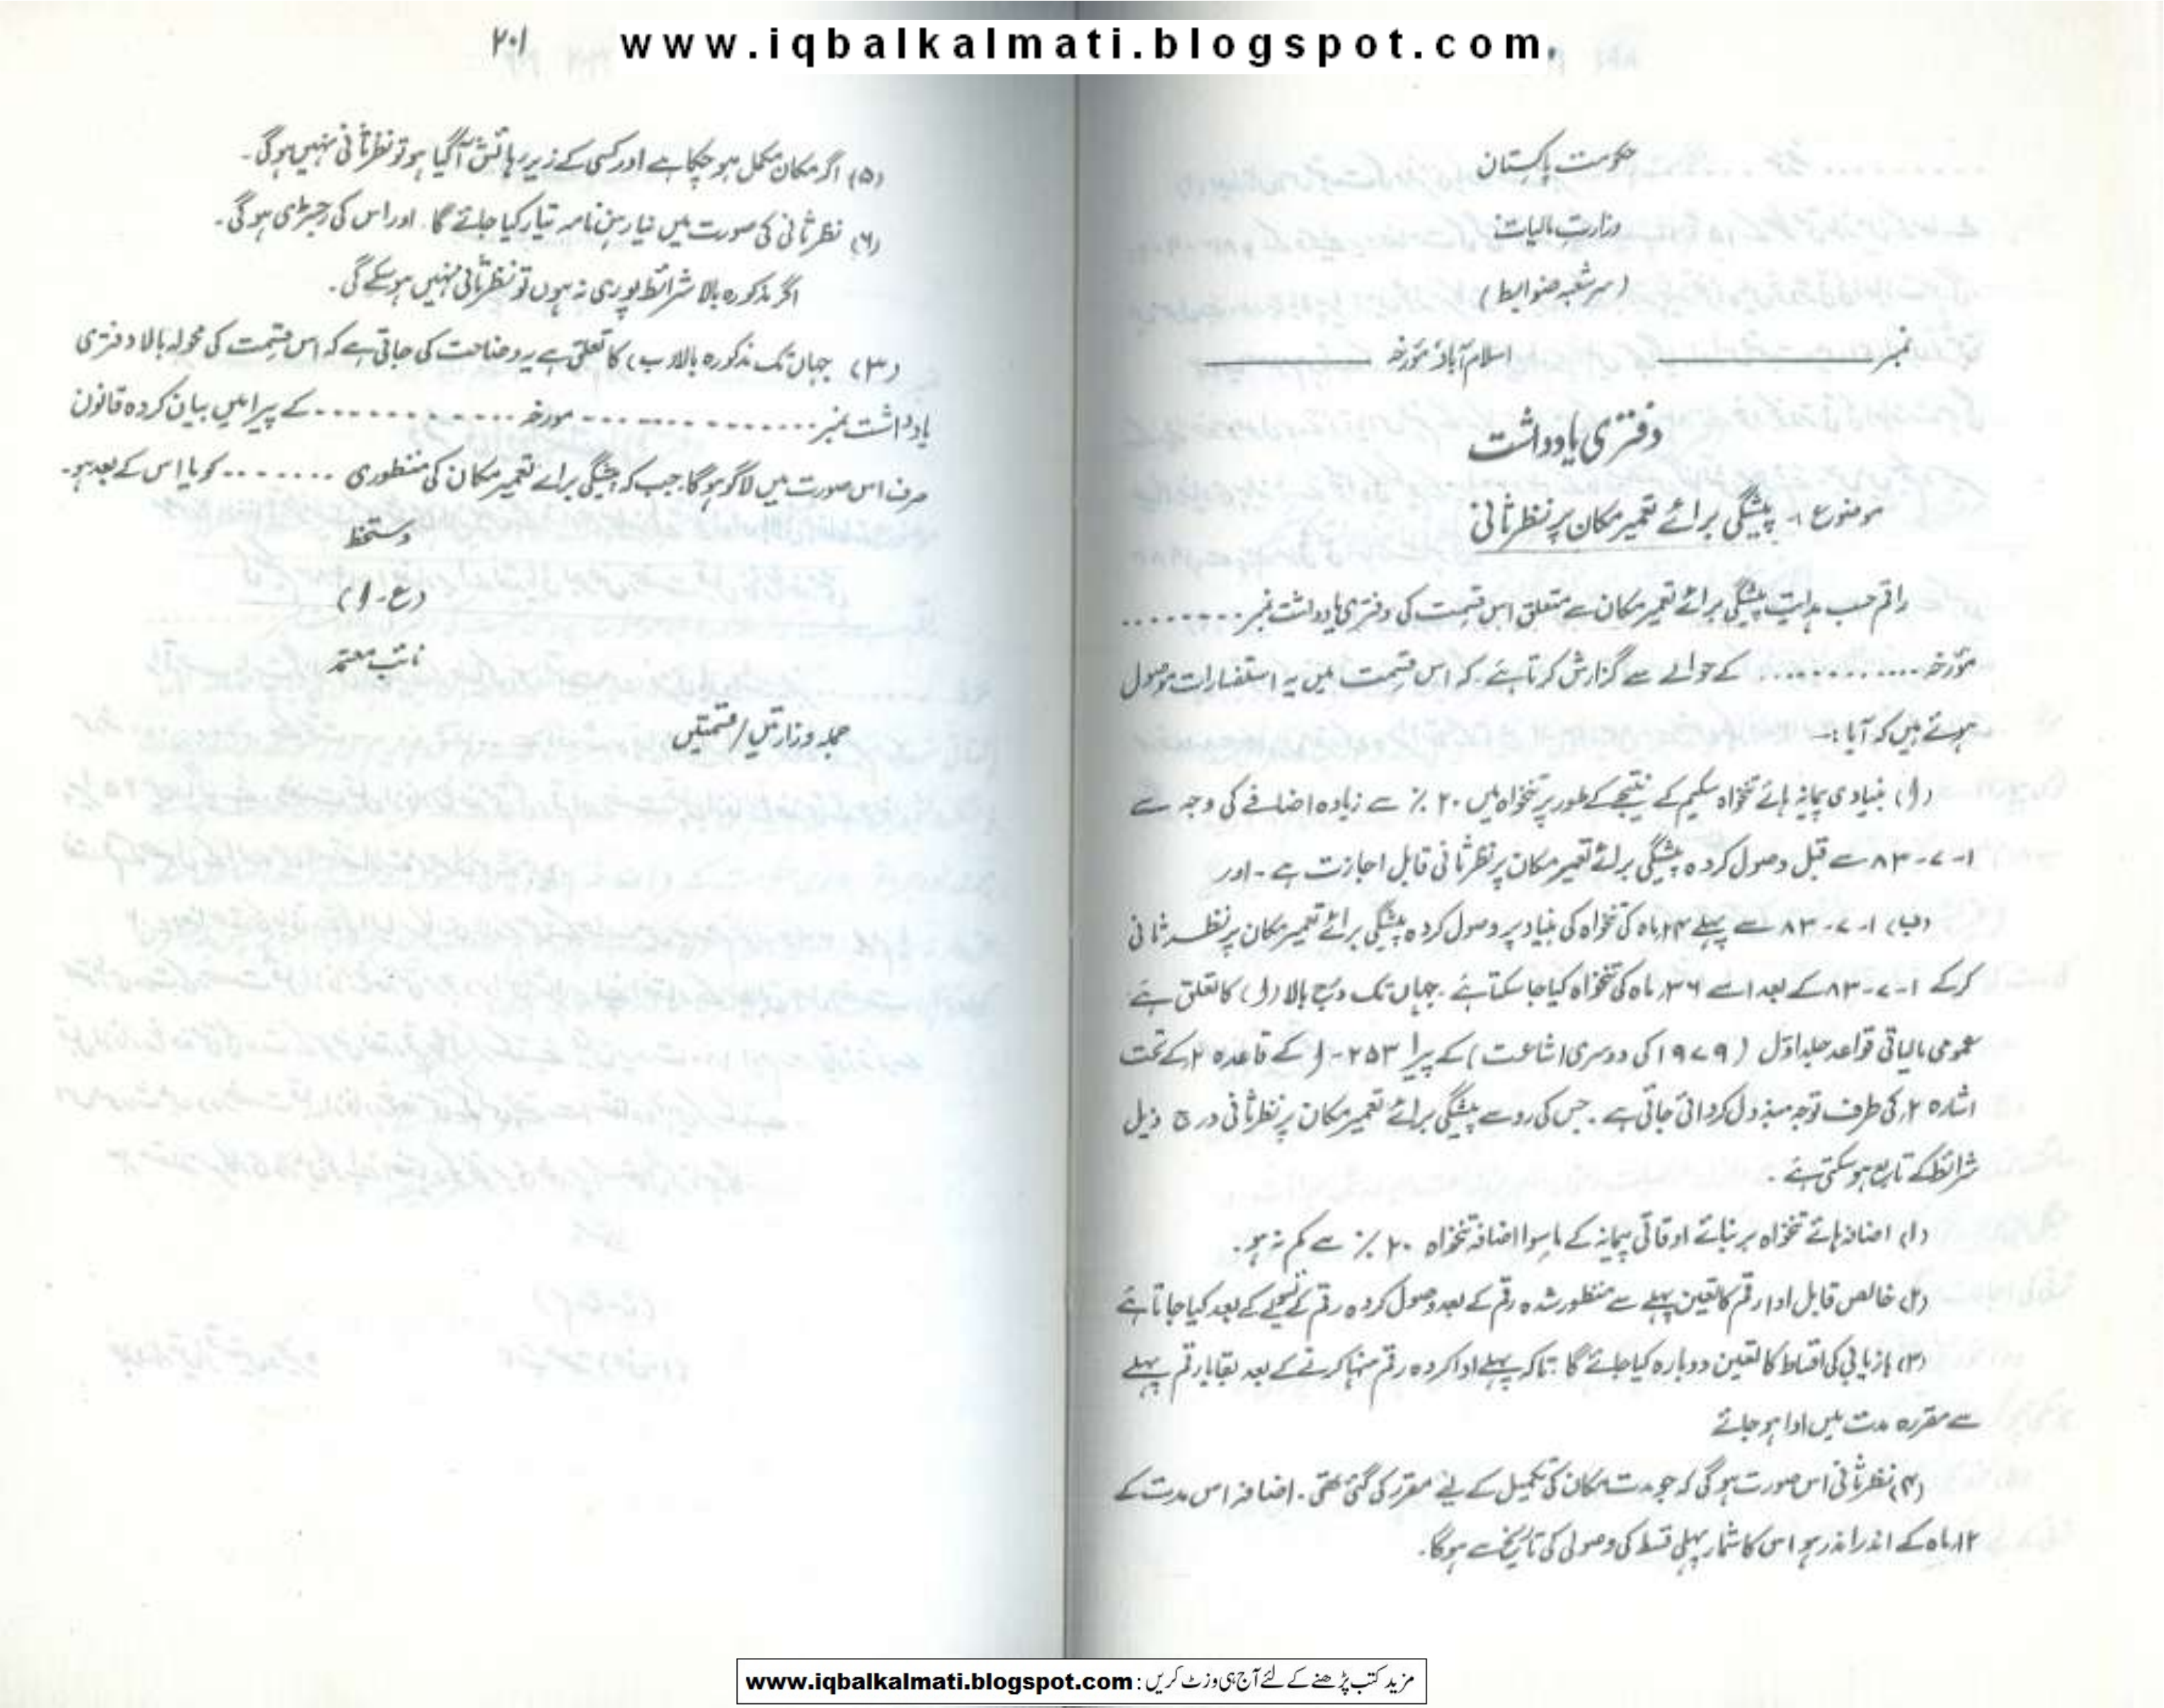 www.iqbalkalmati.blogspot.com
حکومت پاکستان
وزارتِ مالیات
(سرشعبہ ضوابط)
نمبر ــــــــــ اسلام آباد مؤرخہ ــــــــــ
دفتری یادداشت
موضوع :- پیشگی برائے تعمیر مکان پر نظرثانی
راقم حسب ہدایت پیشگی برائے تعمیر مکان سے متعلق اس قسمت کی دفتری یادداشت نمبر ........
مؤرخہ ............ کے حوالے سے گزارش کرتا ہے کہ اس قسمت میں یہ استفسارات موصول
ہوئے ہیں کہ آیا :-
(ا) بنیادی پیمانہ ہائے تنخواہ سکیم کے نتیجے کے طور پر تنخواہ میں ۲۰ ٪ سے زیادہ اضافے کی وجہ سے
۱-۷-۸۳ سے قبل وصول کردہ پیشگی برائے تعمیر مکان پر نظرثانی قابل اجازت ہے - اور
(ب) ۱-۷-۸۳ سے پہلے ۲۴ ماہ کی تنخواہ کی بنیاد پر وصول کردہ پیشگی برائے تعمیر مکان پر نظرثانی
کرکے ۱-۷-۸۳ کے بعد اسے ۳۶ ماہ کی تنخواہ کیا جا سکتا ہے . جہاں تک درج بالا (ا) کا تعلق ہے
عمومی مالیاتی قواعد جلد اوّل (۱۹۷۹ کی دوسری اشاعت) کے پیرا ۲۵۳-ا کے قاعدہ ۲ کے تحت
اشارہ ۲ کی طرف توجہ مبذول کروائی جاتی ہے . جس کی رو سے پیشگی برائے تعمیر مکان پر نظرثانی درج ذیل
شرائط کے تابع ہو سکتی ہے .
(۱) اضافہ ہائے تنخواہ بر بنائے اوقاتی پیمانہ کے ماسوا اضافہ تنخواہ ۲۰ ٪ سے کم نہ ہو .
(۲) خالص قابل ادا رقم کا تعین پہلے سے منظور شدہ رقم کے بعد وصول کردہ رقم کے بعد کیا جاتا ہے
(۳) بازیابی کی اقساط کا تعین دوبارہ کیا جائے گا تاکہ پہلے ادا کردہ رقم منہا کرنے کے بعد بقایا رقم پہلے
سے مقررہ مدت میں ادا ہو جائے
(۴) نظرثانی اس صورت ہو گی کہ جو مدت مکان کی تکمیل کے لیے مقرر کی گئی تھی . اضافہ اس مدت کے
۱۲ ماہ کے اندر اندر ہو اس کا شمار پہلی قسط کی وصولی کی تاریخ سے ہوگا .
۲۰۱
(۵) اگر مکان مکمل ہو چکا ہے اور کسی کے زیر رہائش آ گیا ہو تو نظرثانی نہیں ہوگی .
(۶) نظرثانی کی صورت میں نیا رہن نامہ تیار کیا جائے گا . اور اس کی رجسٹری ہوگی .
اگر مذکورہ بالا شرائط پوری نہ ہوں تو نظرثانی نہیں ہو سکے گی .
(۳) جہاں تک مذکورہ بالا (ب) کا تعلق ہے یہ وضاحت کی جاتی ہے کہ اس قسمت کی محولہ بالا دفتری
یادداشت نمبر ............ مورخہ ............ کے پیرا میں بیان کردہ قانون
صرف اس صورت میں لاگو ہو گا جب کہ پیشگی برائے تعمیر مکان کی منظوری ........ کو یا اس کے بعد ہو .
دستخط
(ع-ا)
نائب معتمد
جملہ وزارتیں / قسمتیں
مزید کتب پڑھنے کے لئے آج ہی وزٹ کریں : www.iqbalkalmati.blogspot.com